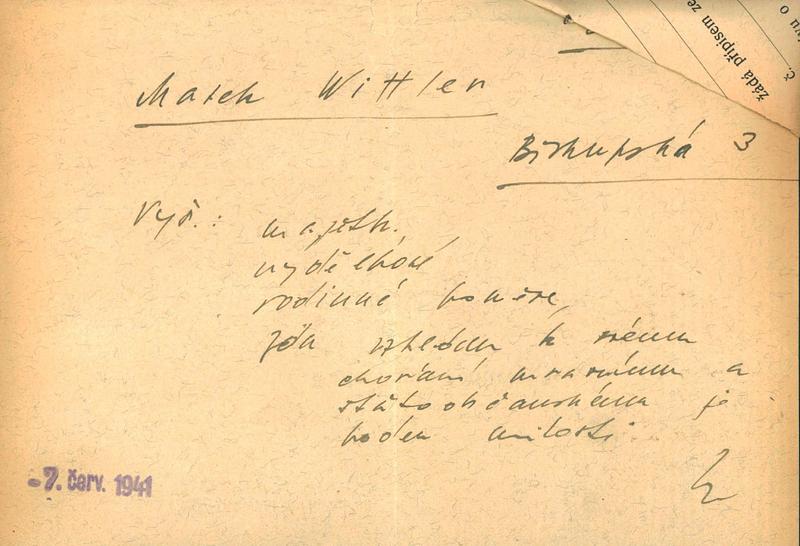 žádá přípisem ze
č.
Marek Wittler
Biskupská 3
Vyš.: majetk.
výdělkové
rodinné poměre,
zda vzhledem k svému
chování mravnímu a
státoobčanskému je
hoden milosti.
-7. červ. 1941